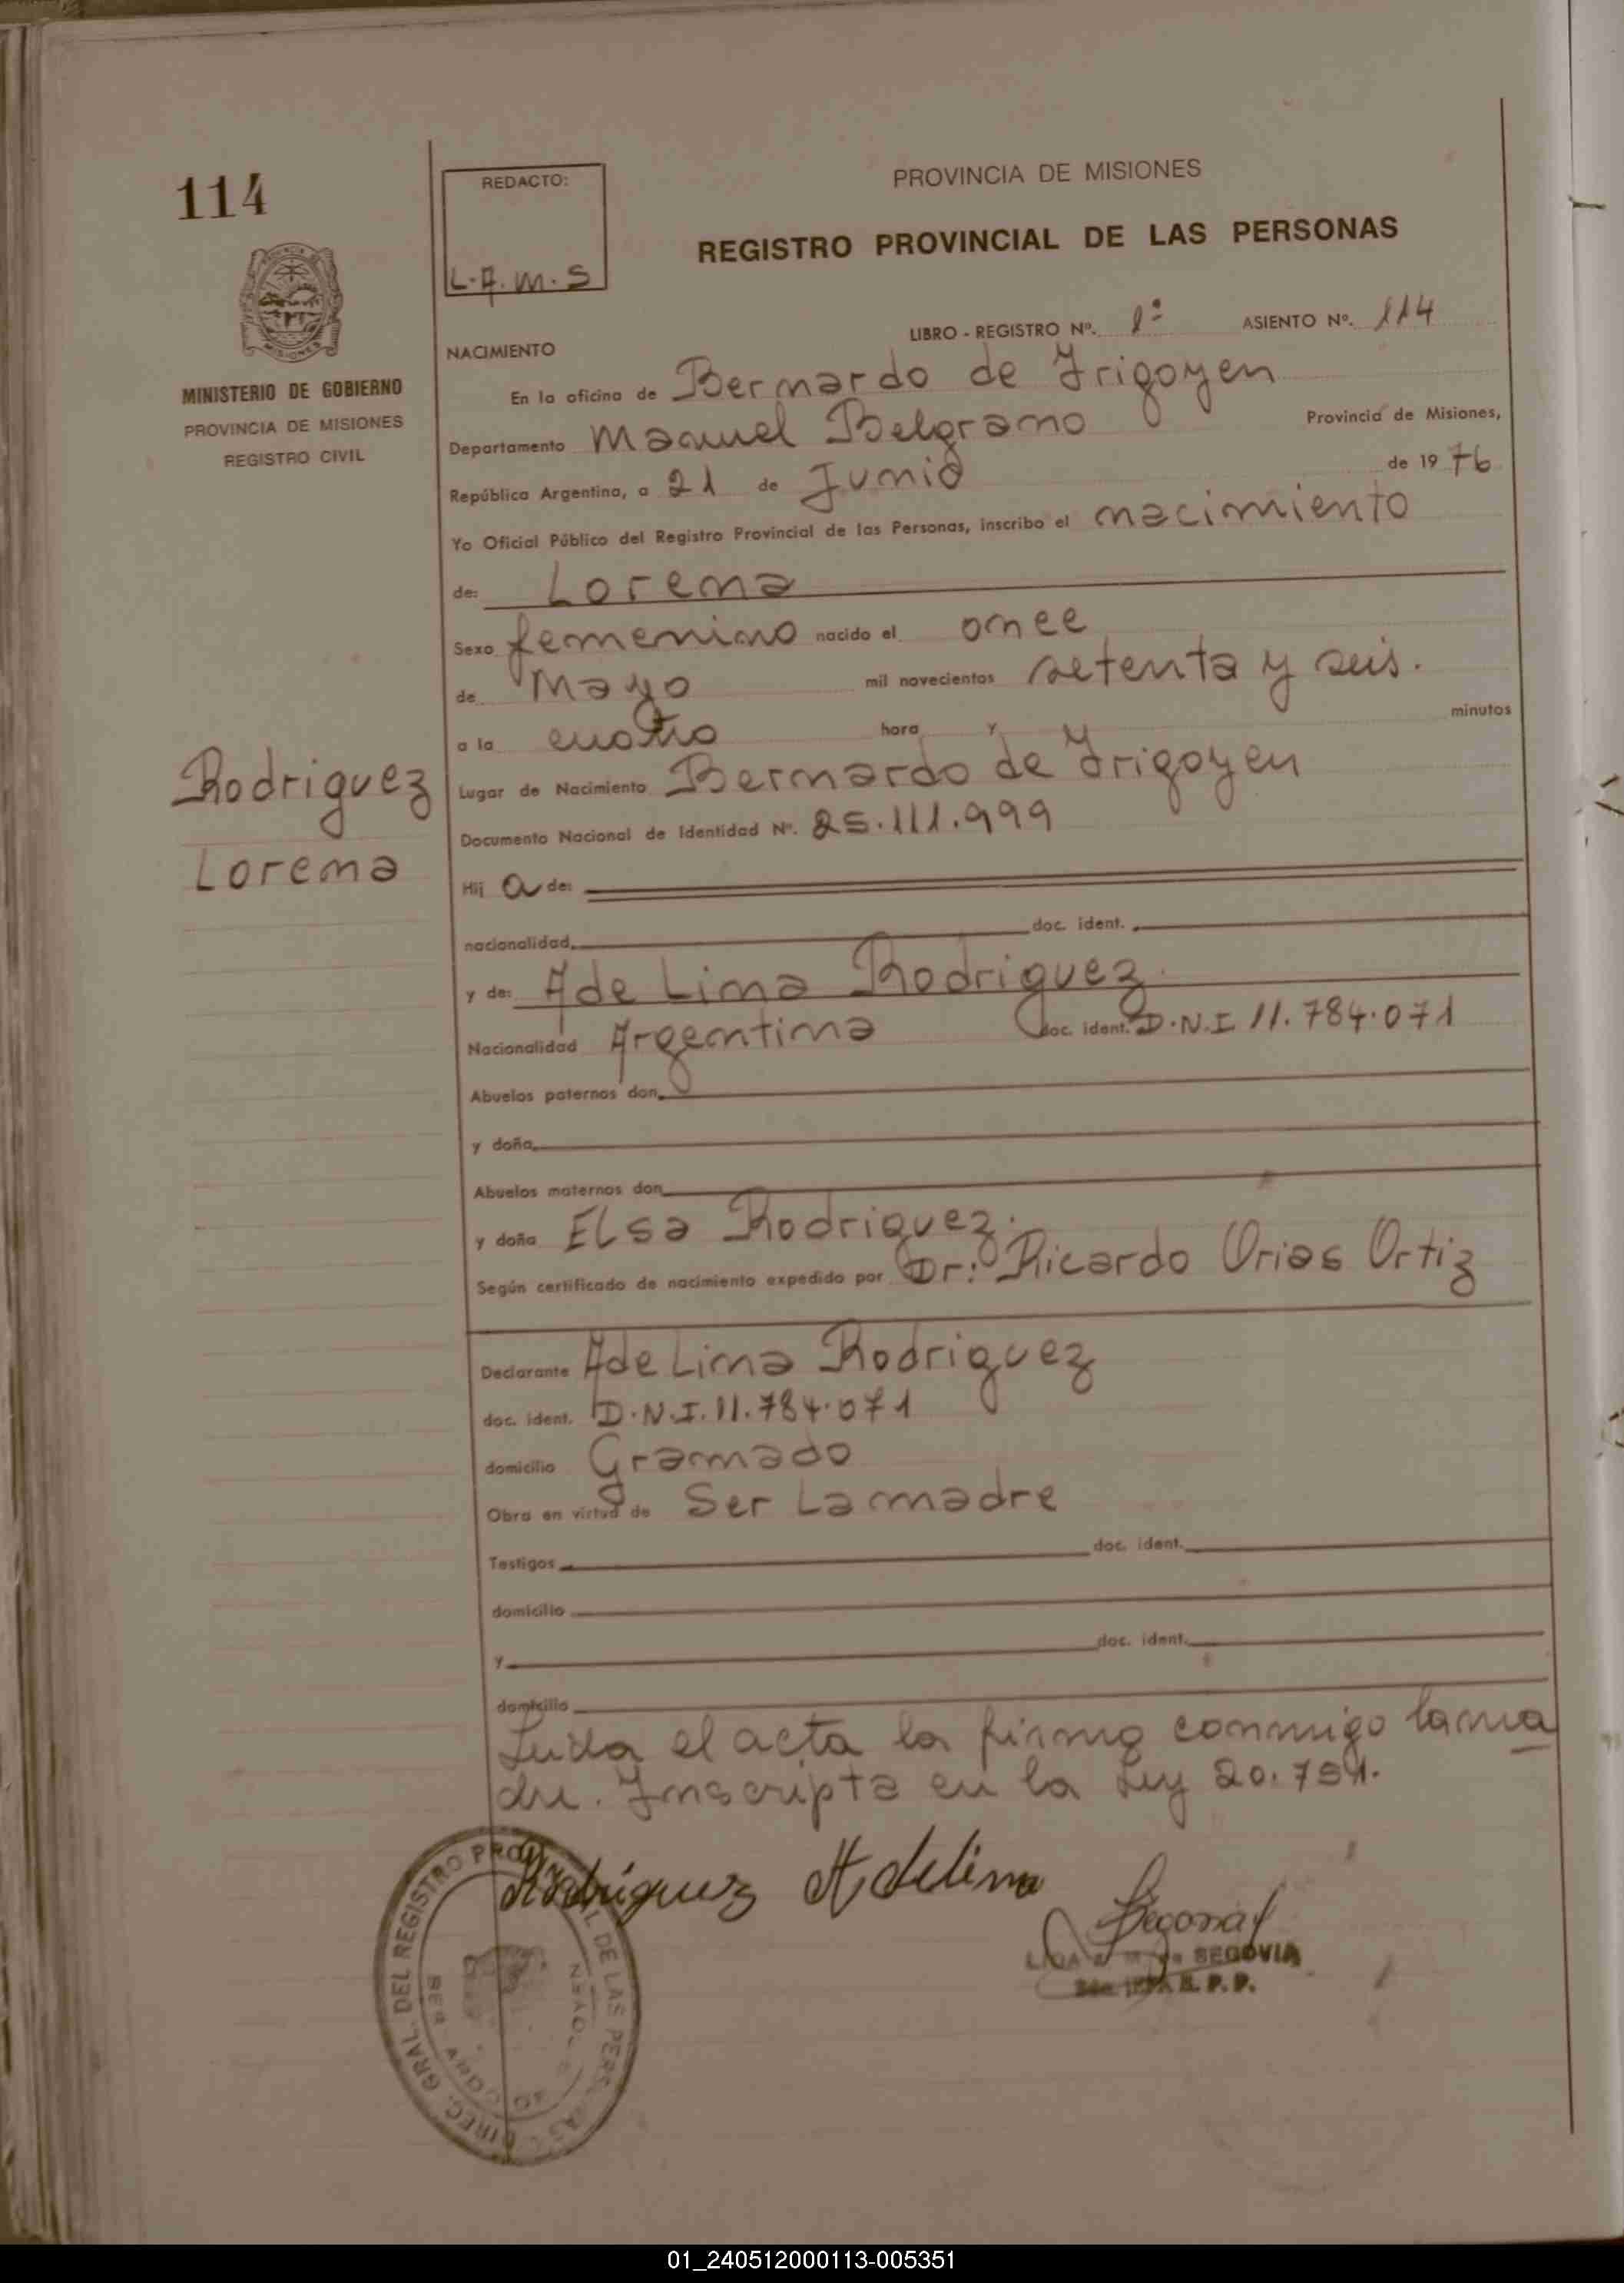 114
MINISTERIO DE GOBIERNO
PROVINCIA DE MISIONES
REGISTRO CIVIL
REDACTO:
L.A.M.S
PROVINCIA DE MISIONES
REGISTRO PROVINCIAL DE LAS PERSONAS
LIBRO - REGISTRO Nº. 1º ASIENTO Nº. 114
NACIMIENTO
En la oficina de Bernardo de Irigoyen
Departamento Manuel Belgrano Provincia de Misiones,
República Argentina, a 21 de Junio de 1976
Yo Oficial Público del Registro Provincial de las Personas, inscribo el nacimiento
de: Lorena
Sexo femenino nacido el once
de Mayo mil novecientos setenta y seis.
a la cuatro hora y minutos
Rodriguez
Lorena
Lugar de Nacimiento Bernardo de Irigoyen
Documento Nacional de Identidad Nº. 25.111.999
Hij a de:
nacionalidad. doc. ident.
y de: AdeLina Rodriguez.
Nacionalidad Argentina doc. ident. D.N.I 11.784.071
Abuelos paternos don
y doña
Abuelos maternos don
y doña ELsa Rodriguez.
Según certificado de nacimiento expedido por Dr: Ricardo Orias Ortiz
Declarante AdeLina Rodriguez
doc. ident. D.N.I. 11.784.071
domicilio Gramado
Obra en virtud de Ser La madre
Testigos doc. ident.
domicilio
y doc. ident.
domicilio
Leida el acta la firma conmigo la ma
dre. Inscripta en la Ley
Rodriguez Adelina
SEGOVIA
DIREC. GRAL. DEL REGISTRO PROVINCIAL DE LAS PERS
01_240512000113-005351